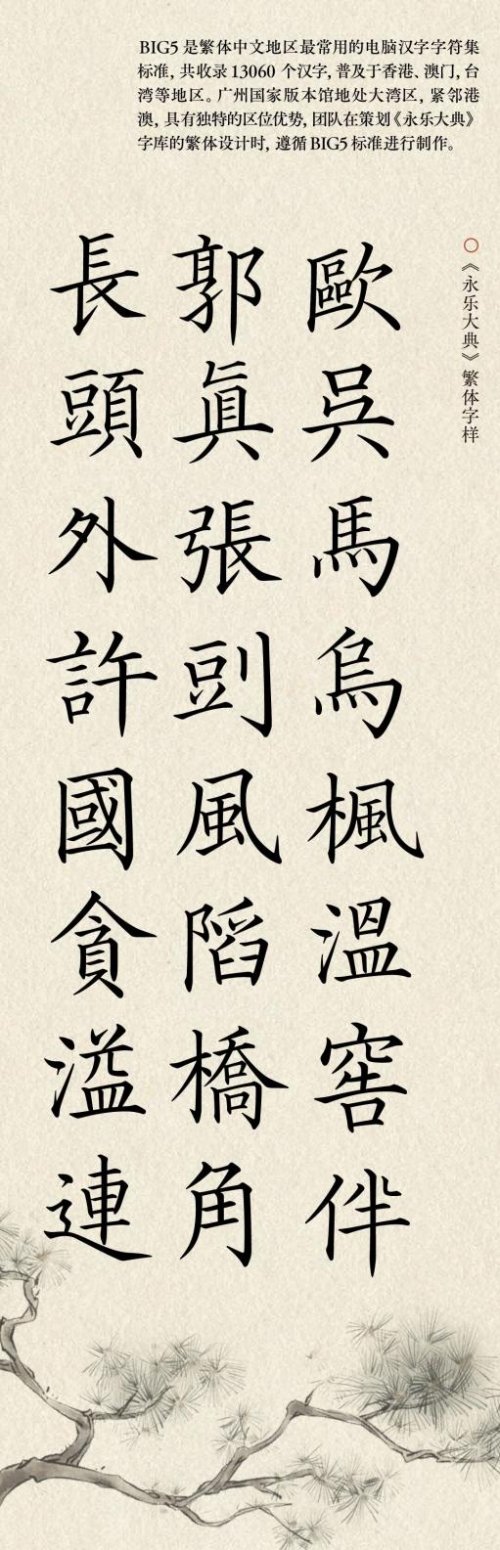 BIG5 是繁体中文地区最常用的电脑汉字字符集
标准，共收录 13060 个汉字，普及于香港、澳门，台
湾等地区。广州国家版本馆地处大湾区，紧邻港
澳，具有独特的区位优势，团队在策划《永乐大典》
字库的繁体设计时，遵循 BIG5 标准进行制作。
○《永乐大典》繁体字样
歐吳馬烏楓溫窖伴
郭眞張剅風陷橋角
長頭外許國貪溢連